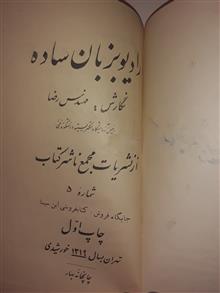 رادیو بزبان ساده
نگارش: مهندس رضا
از نشریات مجمع ناشر کتاب
شماره ۵
جایگاه فروش کتابفروشی ابن سینا
چاپ اول
تهران بسال ۱۳۱۹ خورشیدی
چاپخانه بهار